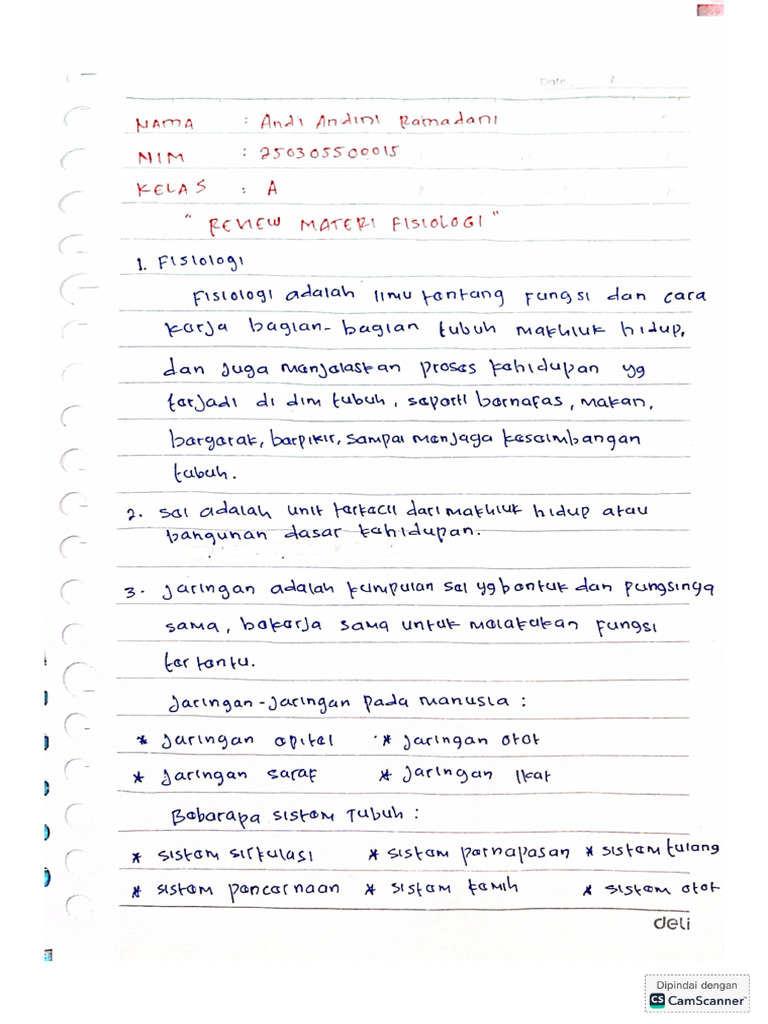 Date : /
NAMA : Andi Andini Ramadani
NIM : 250305500015
KELAS : A
" REVIEW MATERI FISIOLOGI "
1. Fisiologi
Fisiologi adalah ilmu tentang fungsi dan cara
kerja bagian-bagian tubuh makhluk hidup,
dan juga menjelaskan proses kehidupan yg
terjadi di dlm tubuh, seperti bernafas, makan,
bergerak, berpikir, sampai menjaga keseimbangan
tubuh.
2. Sel adalah unit terkecil dari makhluk hidup atau
bangunan dasar kehidupan.
3. Jaringan adalah kumpulan sel yg bentuk dan pungsinya
sama, bekerja sama untuk melakukan fungsi
tertentu.
Jaringan-Jaringan pada manusia :
* Jaringan epitel * Jaringan otot
* Jaringan saraf * Jaringan ikat
Beberapa sistem Tubuh :
* sistem sirkulasi * sistem pernapasan * sistem tulang
* sistem pencernaan * sistem kemih * sistem otot
deli
Dipindai dengan
CS CamScanner